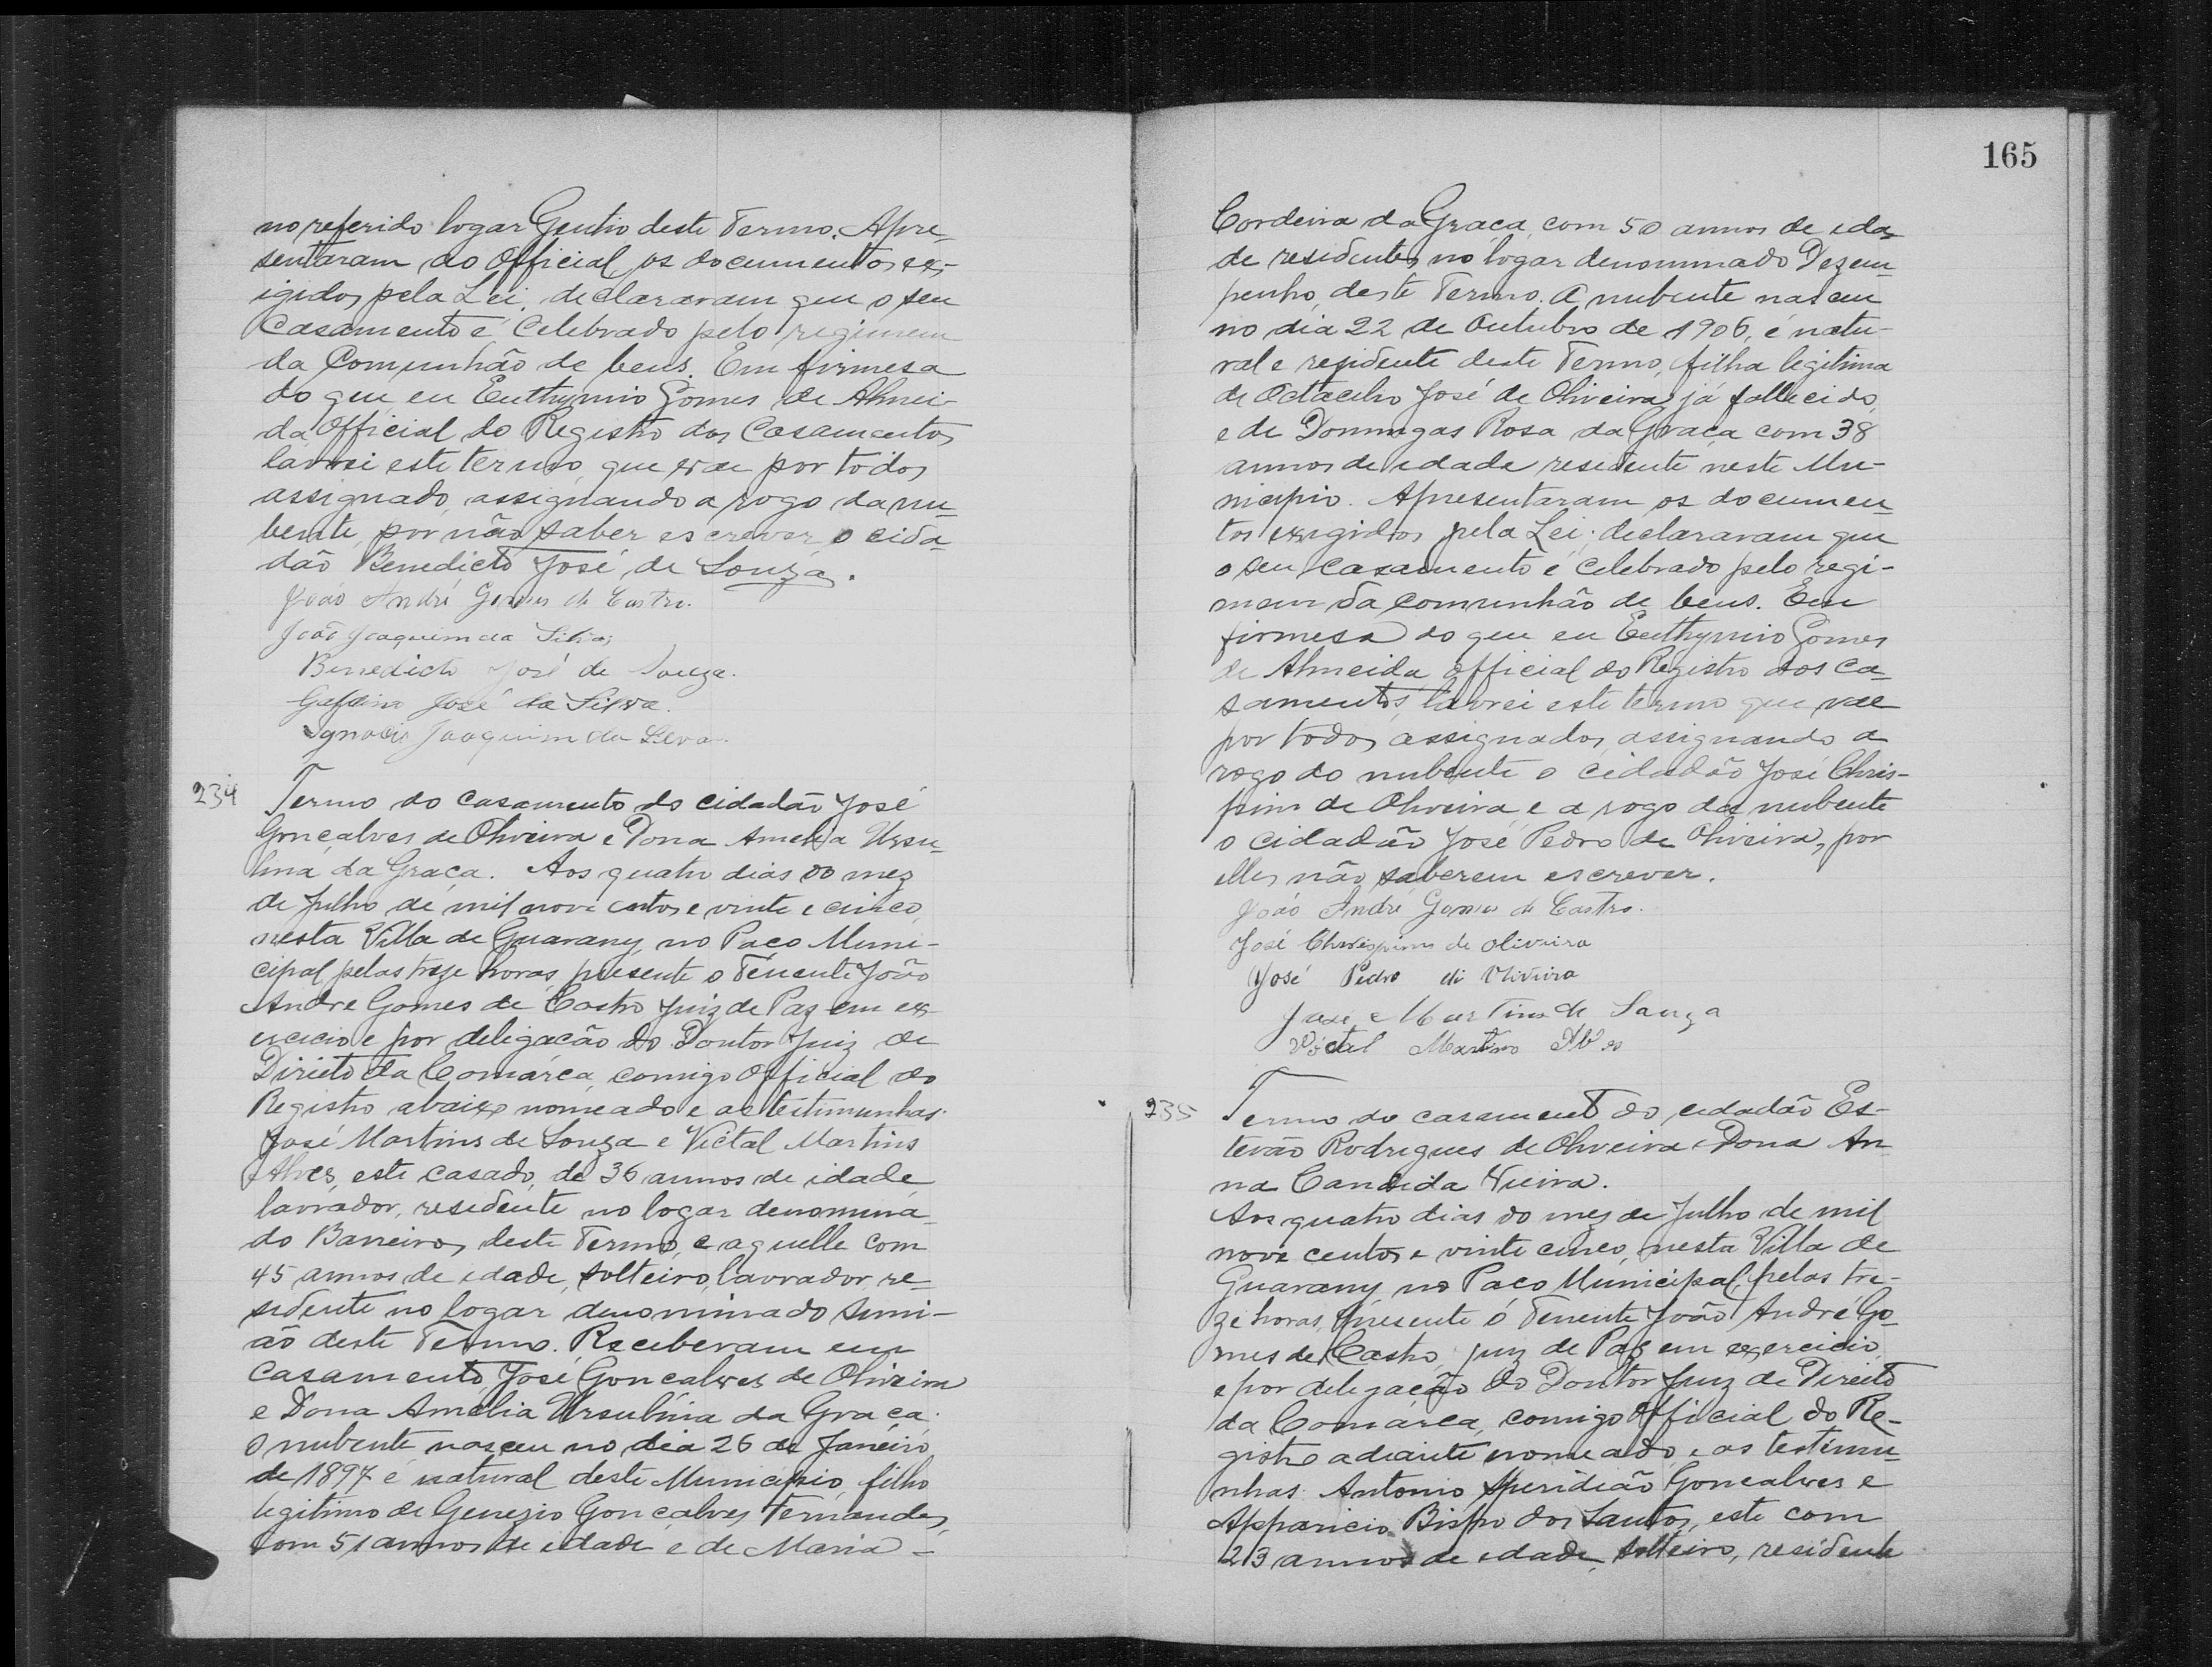 no referido logar Gentio deste Termo. Apre-
sentaram ao Official os documentos ex-
igidos pela Lei, declararam que o seu
Casamento é Celebrado pelo regimem
da Comunhão de bens. Em firmesa
do que eu Euthymio Gomes de Almei-
da Official do Registro dos Casamentos
lavrei este termo que vae por todos
assignado, assignando a rogo da nu-
bente, por não saber escrever o cida-
dão Benedicto José de Souza.
João André Gomes de Castro.
João Joaquim da Silva
Benedicto José de Souza.
José da Silva.
Ignacio Joaquim da Silva.
234 Termo do casamento do cidadão José
Gonçalves de Oliveira e Dona Amelia Ursu-
lina da Graça. Aos quatro dias do mez
de Julho de mil nove centos e vinte e cinco,
nesta Villa de Guarany, no Paço Muni-
cipal pelas treze horas, presente o Tenente João
André Gomes de Castro Juiz de Paz em ex-
ercicio e por delegacão do Doutor Juiz de
Direito da Comárca, comigo Official do
Registro abaixo nomeado e as testimunhas
José Martins de Souza e Victal Martins
Alves, este casado, de 36 annos de idade,
lavrador, residente no logar denomina-
do Barreiros deste Termo, e aquelle com
45 annos de edade, solteiro, lavrador re-
sidente no logar denominado Simi-
ão deste Termo. Receberam em
Casamento José Goncalves de Oliveira
e Dona Amélia Ursulina da Graça.
O nubente nasceu no dia 26 de Janeiro
de 1897 é natural deste Municipio, filho
legitimo de Genezio Gonçalves Fernandes,
com 51 annos de edade e de Maria -
165
Cordeira da Graça, com 50 annos de eda-
de residentes no logar denominado Dezem-
penho, deste Termo. A nubente nasceu
no dia 22 de Outubro de 1906, é natu-
ral e residente deste Termo, filha legitima
de Octacilio José de Oliveira já fallecido,
e de Domingas Rosa da Graça com 38
annos de edade residente neste Mu-
nicipio. Apresentaram os documen-
tos exigidos pela Lei; declararam que
o seu Casamento é Celebrado pelo regi-
mem da comunhão de bens. Em
firmesa do que eu Euthymio Gomes
de Almeida official do Registro dos Ca-
samentos, lavrei este termo que vae
por todos assignados, assignando a
rogo do nubente o cidadão José Chris-
pim de Oliveira, e a rogo da nubente
o cidadão José Pedro de Oliveira, por
elles não saberem escrever.
João André Gomes de Castro.
José Chrispim de oliveira
José Pedro di Oliveira
José Martins de Sauza
Victal Martins
235 Termo do casament do cidadão Es-
tevão Rodrigues de Oliveira e Dona An-
na Candida Vieira.
Aos quatro dias do mez de Julho de mil
nove centos e vinte cinco, nesta Villa de
Guarany, no Paço Municipal, pelas tre-
ze horas, presente o Tenente João André Go-
mes de Castro, juiz de Paz em exercicio,
e por delegacão do Doutor Juiz de Direito
da Comárca, comigo Official do Re-
gistro adiante nomeado, e as testimu-
nhas Antonio Speridião Goncalves e
Apparicio Bispo dos Santos, este com
23 annos de edade, solteiro, residente